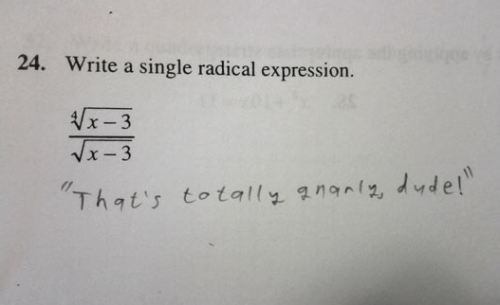 24. Write a single radical expression.
⁴√x – 3
√x – 3
"That's totally gnarly, dude!"